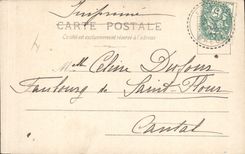 Imprimé
CARTE POSTALE
Ce côté est exclusivement réservé à l'adresse
Mlle Céline Dufour
Faubourg de Saint-Flour
Cantal